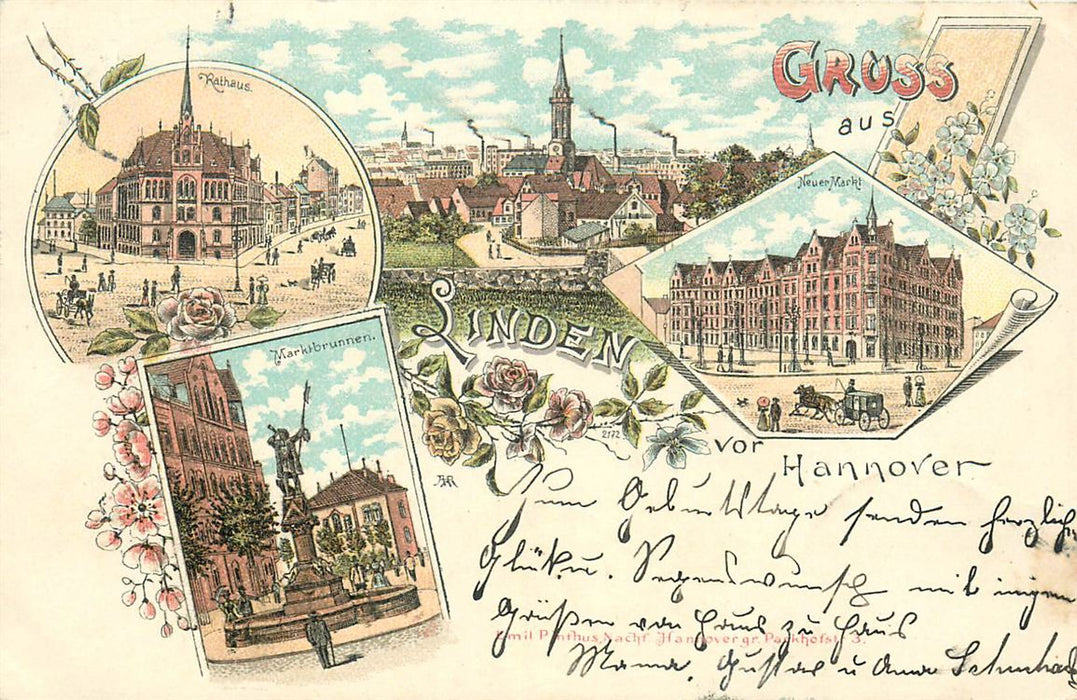 Rathaus.
GRUSS
aus
Neuer Markt
LINDEN
Marktbrunnen.
2172
vor
Hannover
Zum Geburtstage senden herzlich
Glück u. Segenswunsch mit innigen
Grüßen von Haus zu Haus
Emil Pinthus, Nachf. Hannover gr. Packhofstr. 3.
Mama, Gustav u Anna